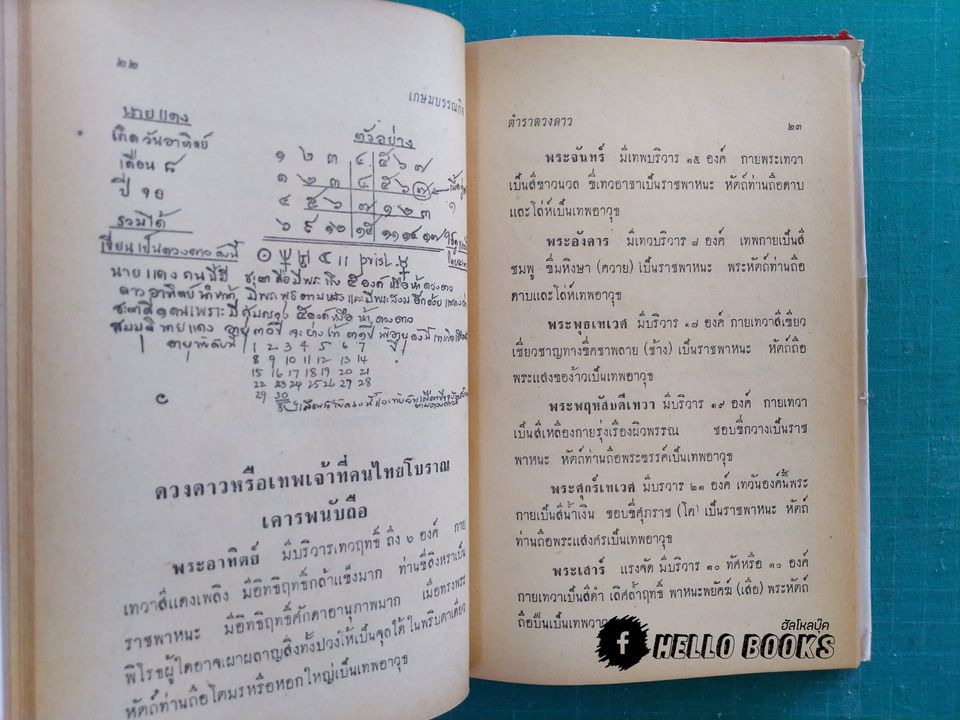 ๒๒
เกษมบรรณกิจ
นายแดง
เกิดวันอาทิตย์
เดือน ๘
ปี ๑๐
รวมได้
ตัวอย่าง
๑ ๒ ๓ ๔ ๕ ๖ ๗
๑ ๒ ๓ ๔ ๕ ๖ ๗
๔ ๕ ๖ ๗ ๑ ๒ ๓
๖ ๙ ๑๒ ๑๕ ๑๑ ๑๔ ๑๗
เขียนเป็นดวงดาว ดังนี้
นายแดง คนนี้มี
ดาวอาทิตย์นำหน้า
สมมุติ นายแดง อายุ ๓๐ ปี
1 2 3 4 5 6 7
8 9 10 11 12 13 14
15 16 17 18 19 20 21
22 23 24 25 26 27 28
29 30
ดวงดาวหรือเทพเจ้าที่คนไทยโบราณ
เคารพนับถือ
พระอาทิตย์ มีบริวารเทวฤทธิ์ ถึง ๖ องค์ กาย
เทวาสีแดงเพลิง มีอิทธิฤทธิ์กล้าแข็งมาก ท่านขี่สิงหราเป็น
ราชพาหนะ มีอิทธิฤทธิ์ศักดาอานุภาพมาก เมื่อทรงพระ
พิโรธผู้ใดอาจเผาผลาญสิ่งทั้งปวงให้เป็นจุลได้ ในพริบตาเดียว
หัตถ์ท่านถือโตมรหรือหอกใหญ่เป็นเทพอาวุธ
ตำราดวงดาว
๒๓
พระจันทร์ มีเทพบริวาร ๑๕ องค์ กายพระเทวา
เป็นสีขาวนวล ขี่เทวอาชาเป็นราชพาหนะ หัตถ์ท่านถือดาบ
และโล่ห์เป็นเทพอาวุธ
พระอังคาร มีเทวบริวาร ๘ องค์ เทพกายเป็นสี
ชมพู ขี่มหิงษา (ควาย) เป็นราชพาหนะ พระหัตถ์ท่านถือ
ดาบและโล่ห์เป็นเทพอาวุธ
พระพุธเทเวศ มีบริวาร ๑๗ องค์ กายเทวาสีเขียว
เชี่ยวชาญทางขี่คชาพลาย (ช้าง) เป็นราชพาหนะ หัตถ์ถือ
พระแสงของ้าวเป็นเทพอาวุธ
พระพฤหัสบดีเทวา มีบริวาร ๑๙ องค์ กายเทวา
เป็นสีเหลืองกายรุ่งเรืองผิวพรรณ ชอบขี่กวางเป็นราช
พาหนะ หัตถ์ท่านถือพระขรรค์เป็นเทพอาวุธ
พระศุกร์เทเวศ มีบริวาร ๒๑ องค์ เทวันองค์นี้พระ
กายเป็นสีน้ำเงิน ชอบขี่ศุภราช (โค) เป็นราชพาหนะ หัตถ์
ท่านถือพระแสงศรเป็นเทพอาวุธ
พระเสาร์ แรงจัด มีบริวาร ๑๐ ทัศหรือ ๑๐ องค์
กายเทวาเป็นสีดำ เลิศล้ำฤทธิ์ พาหนะพยัคฆ์ (เสือ) พระหัตถ์
ถือปืนเป็นเทพอาวุธ
ฮัลโหลบุ๊ค
f HELLO BOOKS